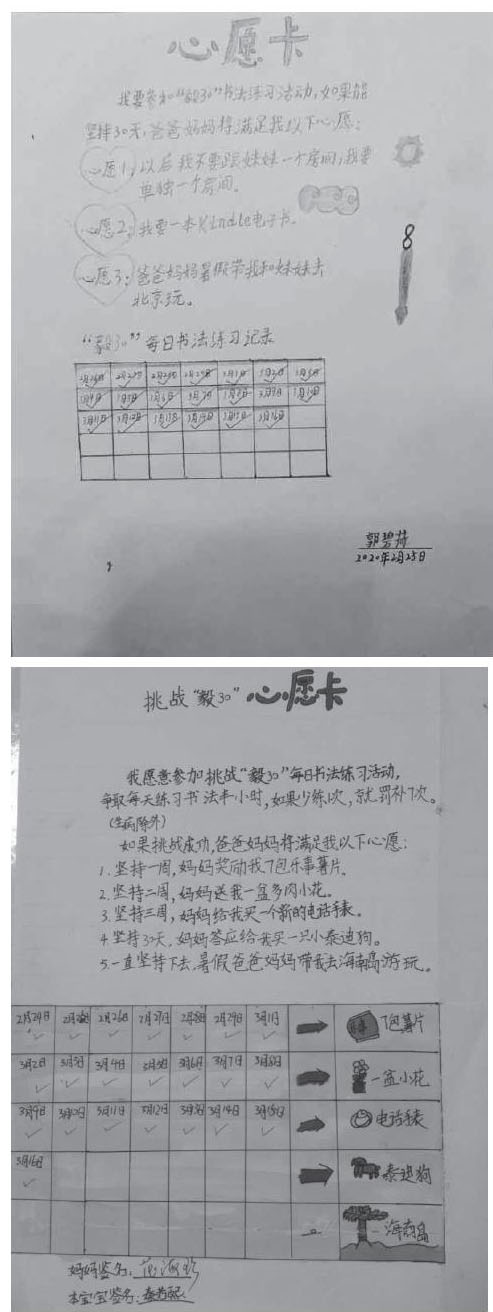 心愿卡
我要参加“毅30”书法练习活动,如果能
坚持30天,爸爸妈妈将满足我以下心愿:
心愿1,以后我不要跟妹妹一个房间,我要
单独一个房间。
心愿2,我要一本Kindle电子书。
心愿3:爸爸妈妈暑假带我和妹妹去
北京玩。
8
“毅30”每日书法练习记录
3月11日 3月12日 3月13日 3月14日 3月15日 3月16日
郭碧荷
2020年2月25日
挑战“毅30”心愿卡
我愿意参加挑战“毅30”每日书法练习活动,
争取每天练习书法半小时,如果少练1次,就罚补7次。
(生病除外)
如果挑战成功,爸爸妈妈将满足我以下心愿:
1.坚持一周,妈妈奖励我7包乐事薯片。
2.坚持二周,妈妈送我一盆多肉小花。
3.坚持三周,妈妈给我买一个新的电话手表。
4.坚持30天,妈妈答应给我买一只小泰迪狗。
5.一直坚持下去,暑假爸爸妈妈带我去海南岛游玩。
2月24日 2月25日 2月26日 2月27日 2月28日 2月29日 3月1日 7包薯片
3月2日 3月3日 3月4日 3月5日 3月6日 3月7日 3月8日 一盆小花
3月9日 3月10日 3月11日 3月12日 3月13日 3月14日 3月15日 电话手表
3月16日 泰迪狗
海南岛
妈妈签名:
本宝宝签名: